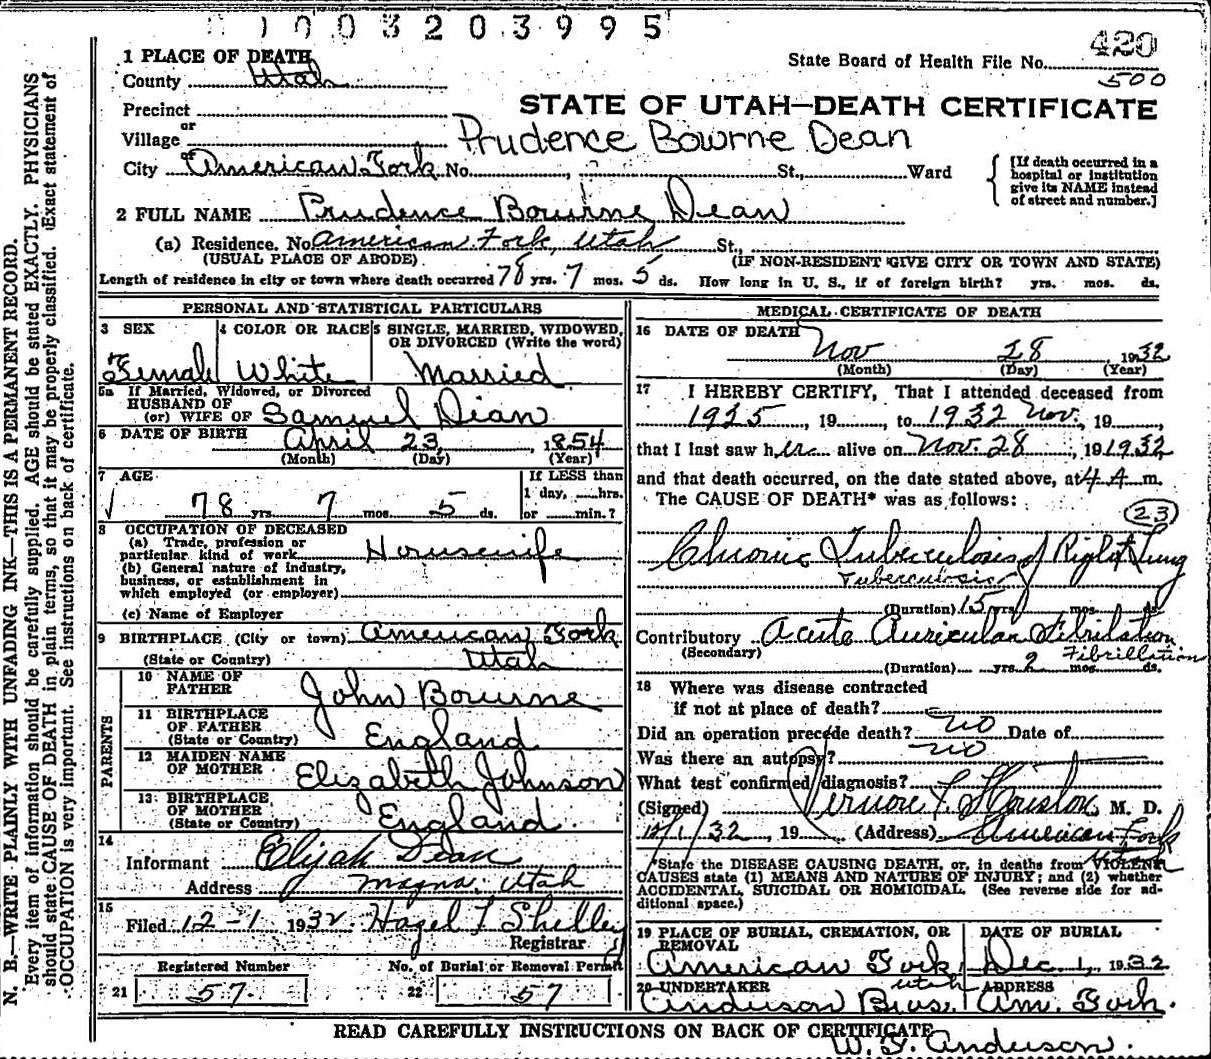 1003203995
420
State Board of Health File No.
500
1 PLACE OF DEATH
County Utah
STATE OF UTAH—DEATH CERTIFICATE
Precinct
or
Village
Prudence Bowrne Dean
or
City American Fork No. , St., Ward
[If death occurred in a hospital or institution give its NAME instead of street and number.]
2 FULL NAME Prudence Bourne Dean
(a) Residence. No American Fork, Utah St.,
(USUAL PLACE OF ABODE) (IF NON-RESIDENT GIVE CITY OR TOWN AND STATE)
Length of residence in city or town where death occurred 78 yrs. 7 mos. 5 ds. How long in U. S., if of foreign birth? yrs. mos. ds.
PERSONAL AND STATISTICAL PARTICULARS
3 SEX
Female
4 COLOR OR RACE
White
5 SINGLE, MARRIED, WIDOWED,
OR DIVORCED (Write the word)
Married
5a If Married, Widowed, or Divorced
HUSBAND OF
(or) WIFE OF Samuel Dean
6 DATE OF BIRTH April 23, 1854
(Month) (Day) (Year)
7 AGE
78 yrs. 7 mos. 5 ds.
If LESS than
1 day, hrs.
or min.?
8 OCCUPATION OF DECEASED
(a) Trade, profession or
particular kind of work Housewife
(b) General nature of industry,
business, or establishment in
which employed (or employer)
(c) Name of Employer
9 BIRTHPLACE (City or town) American Fork
(State or Country) Utah
PARENTS
10 NAME OF
FATHER John Bourne
11 BIRTHPLACE
OF FATHER
(State or Country) England
12 MAIDEN NAME
OF MOTHER Elizabeth Johnson
13 BIRTHPLACE
OF MOTHER
(State or Country) England.
14
Informant Elijah Dean
Address Magna, Utah
15
Filed 12-1 1932 Hazel T Shelley
Registrar
Registered Number
21 57
No. of Burial or Removal Permit
22 57
MEDICAL CERTIFICATE OF DEATH
16 DATE OF DEATH
Nov 28, 1932
(Month) (Day) (Year)
17 I HEREBY CERTIFY, That I attended deceased from
1925, 19 , to 1932 Nov., 19 ,
that I last saw her alive on Nov. 28, 19 1932
and that death occurred, on the date stated above, at 4 A m.
The CAUSE OF DEATH* was as follows:
(23)
Chronic Tuberculosis of Right Lung
Tuberculosis
(Duration) 15 yrs mos. ds.
Contributory Acute Auricular Fibrilation
(Secondary) Fibrillation
(Duration) yrs 2 mos. ds.
18 Where was disease contracted
if not at place of death?
Did an operation precede death? no Date of
Was there an autopsy? no
What test confirmed diagnosis?
(Signed) Vernone F. Houston, M. D.
12/1/32, 19 (Address) American Fork
Utah
*State the DISEASE CAUSING DEATH, or, in deaths from VIOLENT
CAUSES state (1) MEANS AND NATURE OF INJURY; and (2) whether
ACCIDENTAL, SUICIDAL OR HOMICIDAL. (See reverse side for ad-
ditional space.)
19 PLACE OF BURIAL, CREMATION, OR
REMOVAL
American Fork,
Utah
DATE OF BURIAL
Dec. 1, 1932
20 UNDERTAKER
Anderson Bros.
ADDRESS
Am. Fork.
W. F. Anderson.
READ CAREFULLY INSTRUCTIONS ON BACK OF CERTIFICATE
N. B.—WRITE PLAINLY WITH UNFADING INK—THIS IS A PERMANENT RECORD.
Every item of information should be carefully supplied. AGE should be stated EXACTLY. PHYSICIANS
should state CAUSE OF DEATH in plain terms, so that it may be properly classified. Exact statement of
OCCUPATION is very important. See instructions on back of certificate.